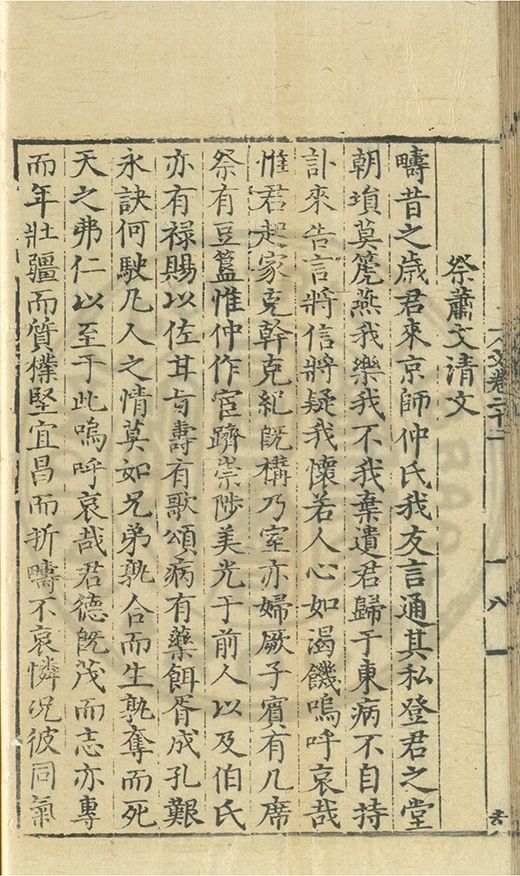 祭蕭文清文
疇昔之歲君來京師仲氏我友言通其私登君之堂
朝塤莫箎燕我樂我不我棄遺君歸于東病不自持
訃來告言將信將疑我懷若人心如渴饑嗚呼哀哉
惟君起家克幹克紀旣構乃室亦婦厥子賓有几席
祭有豆簋惟仲作官躋崇陟美光于前人以及伯氏
亦有祿賜以佐甘旨壽有歌頌病有藥餌胥成孔艱
永訣何駛凡人之情莫如兄弟孰合而生孰奪而死
天之弗仁以至于此嗚呼哀哉君德旣茂而志亦專
而年壯疆而質樸堅宜昌而折疇不哀憐况彼同氣
文卷二十二
八